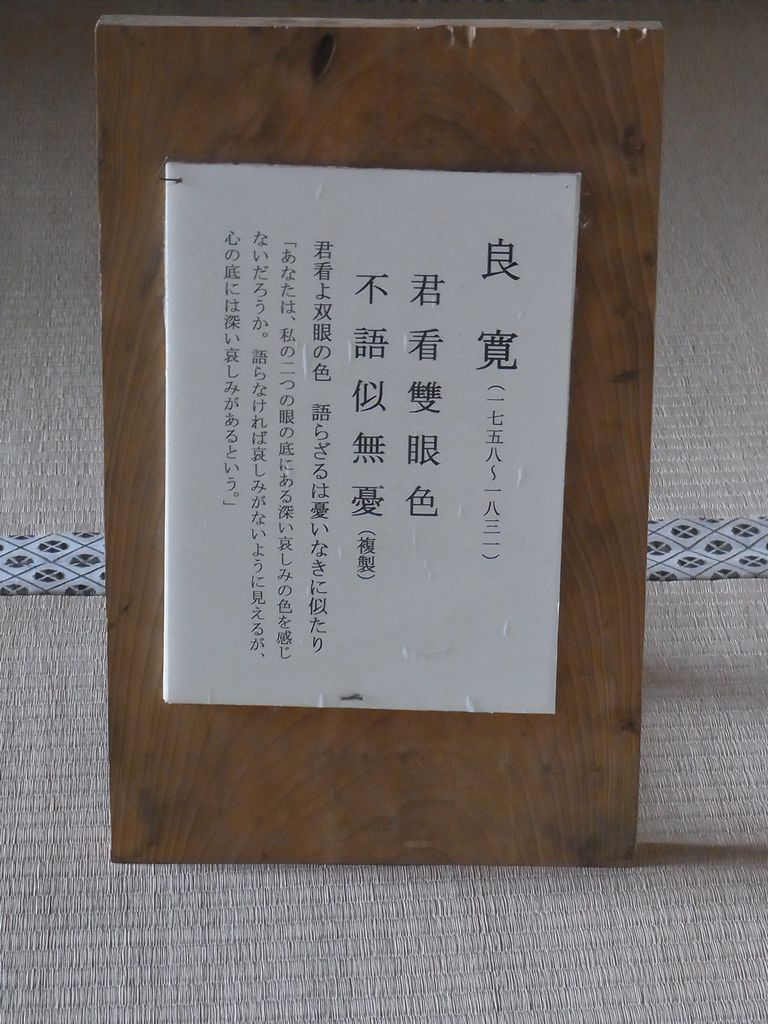 良寛（一七五八～一八三一）
君看雙眼色
不語似無憂（複製）
君看よ双眼の色　語らざるは憂いなきに似たり
「あなたは、私の二つの眼の底にある深い哀しみの色を感じ
ないだろうか。語らなければ哀しみがないように見えるが、
心の底には深い哀しみがあるという。」